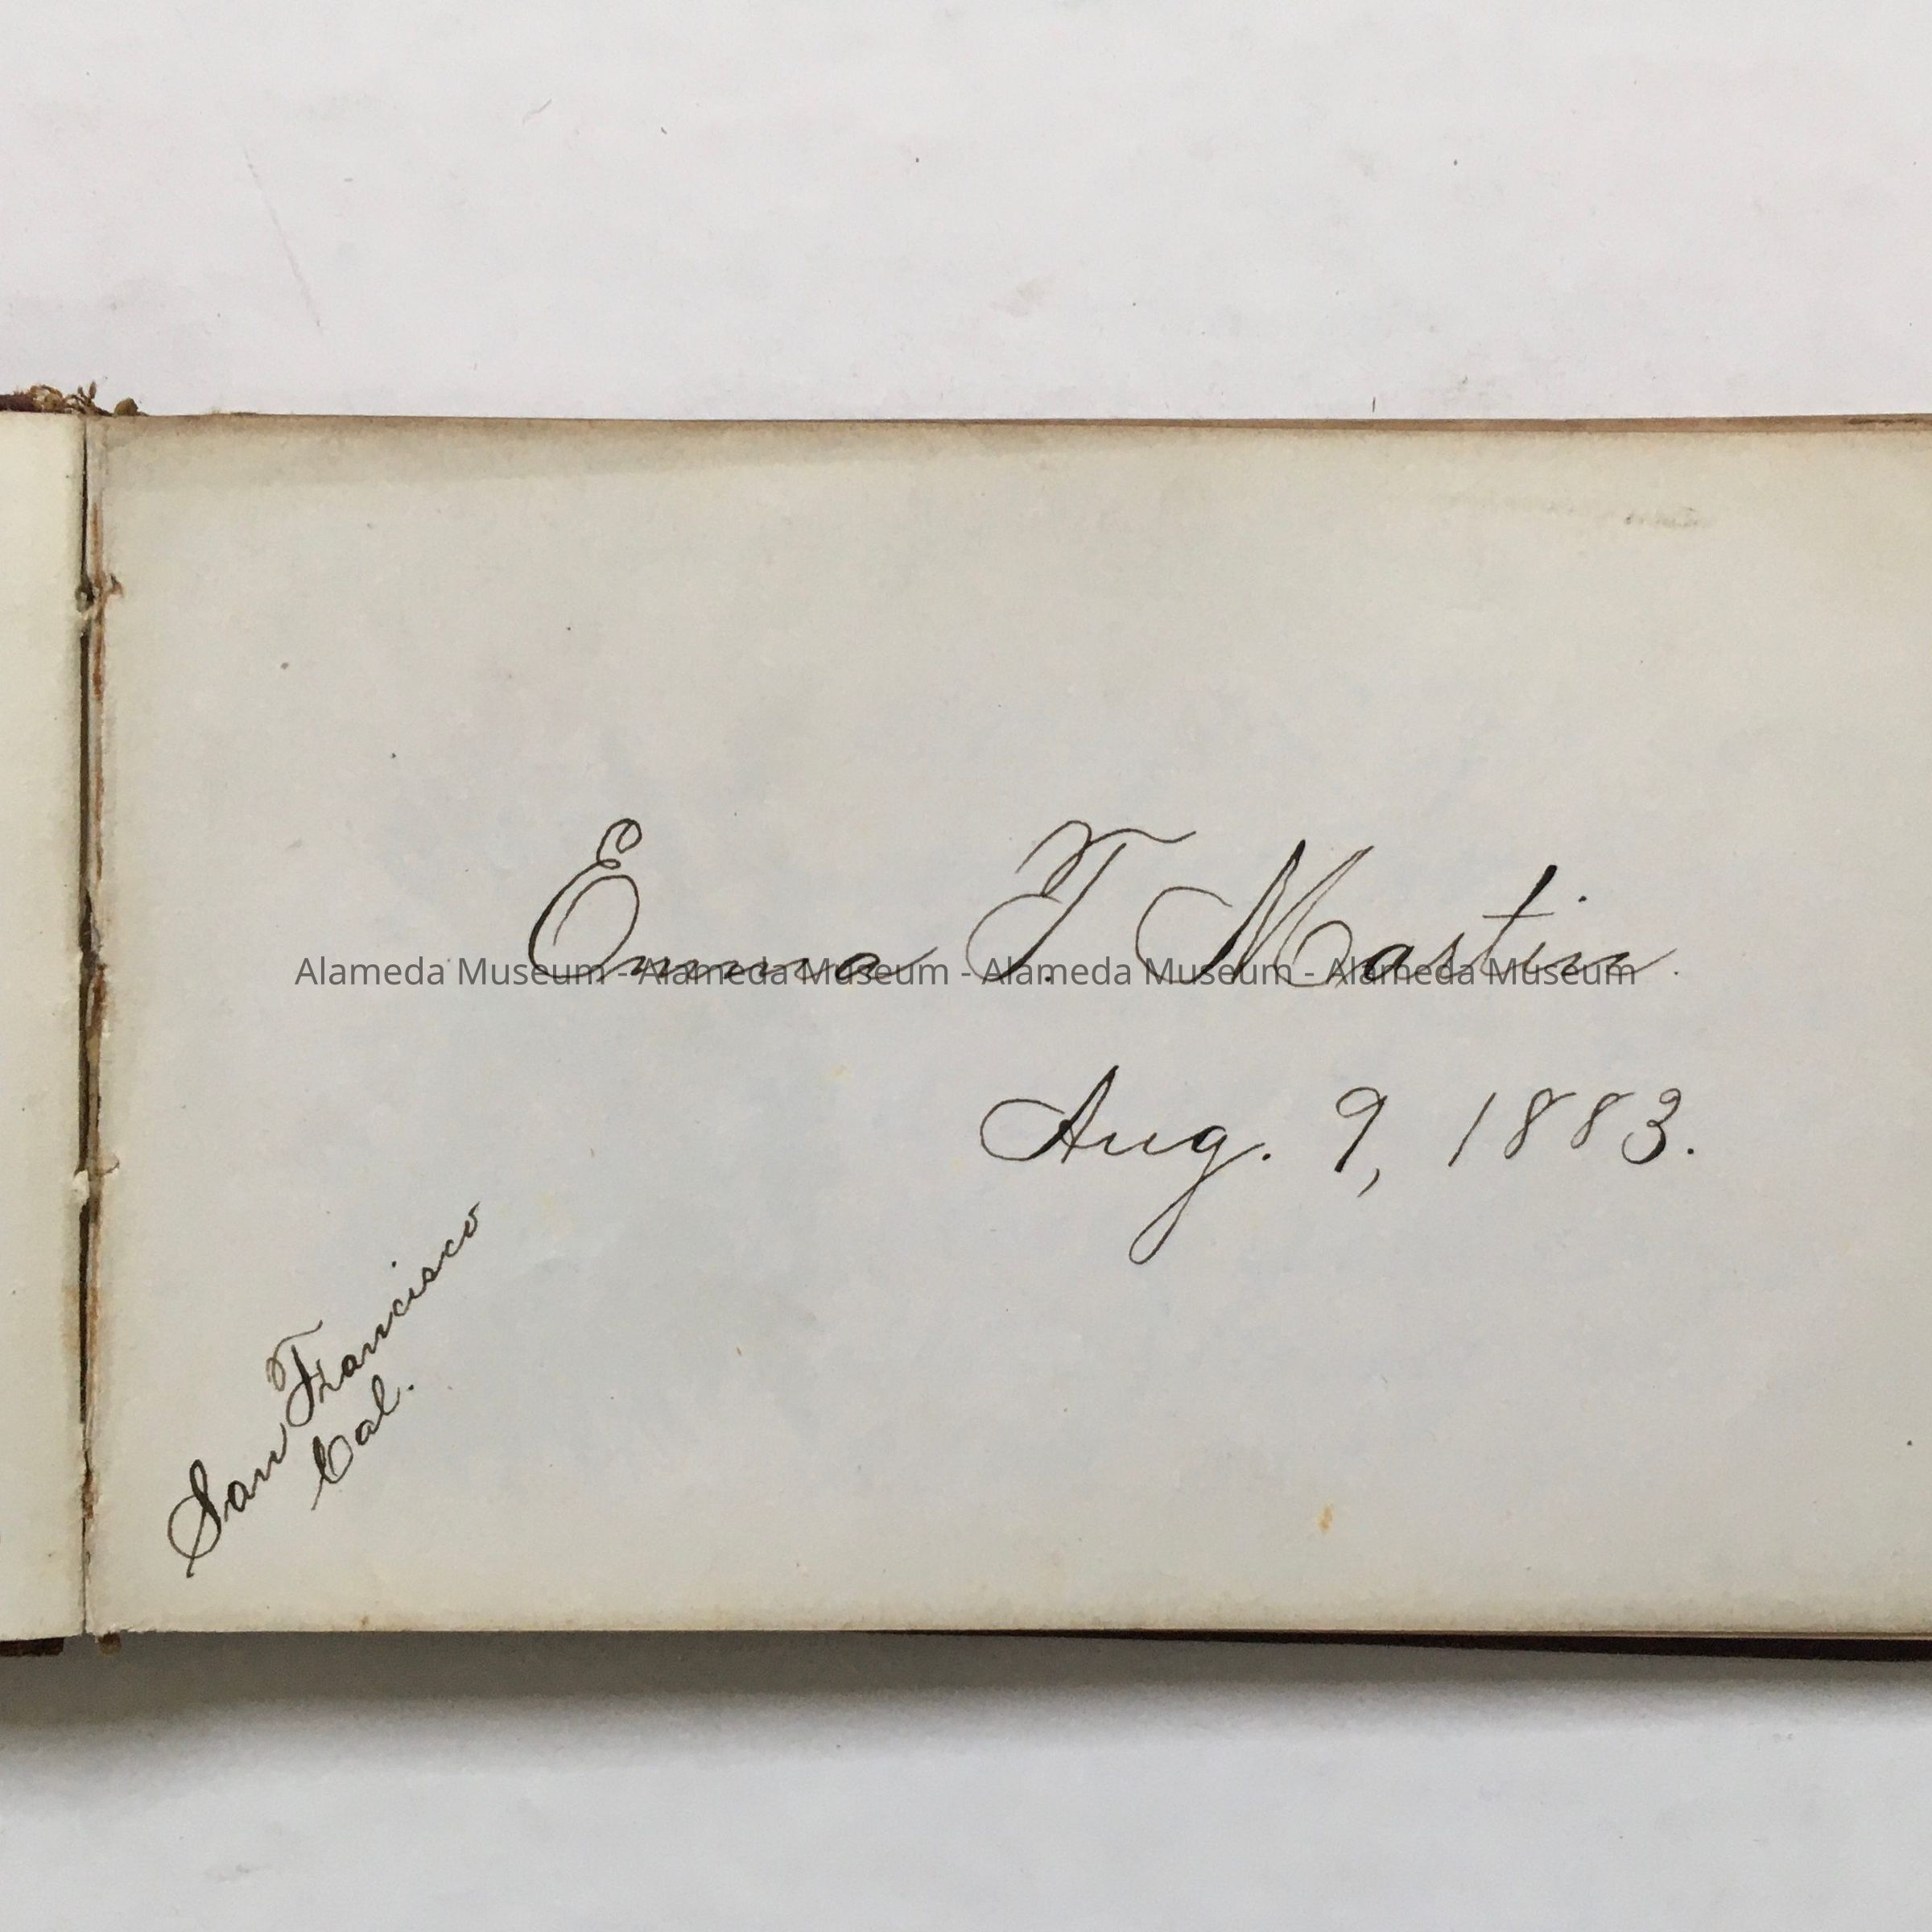 Emma T. Martin.
Alameda Museum - Alameda Museum - Alameda Museum - Alameda Museum
Aug. 9, 1883.
San Francisco
Cal.